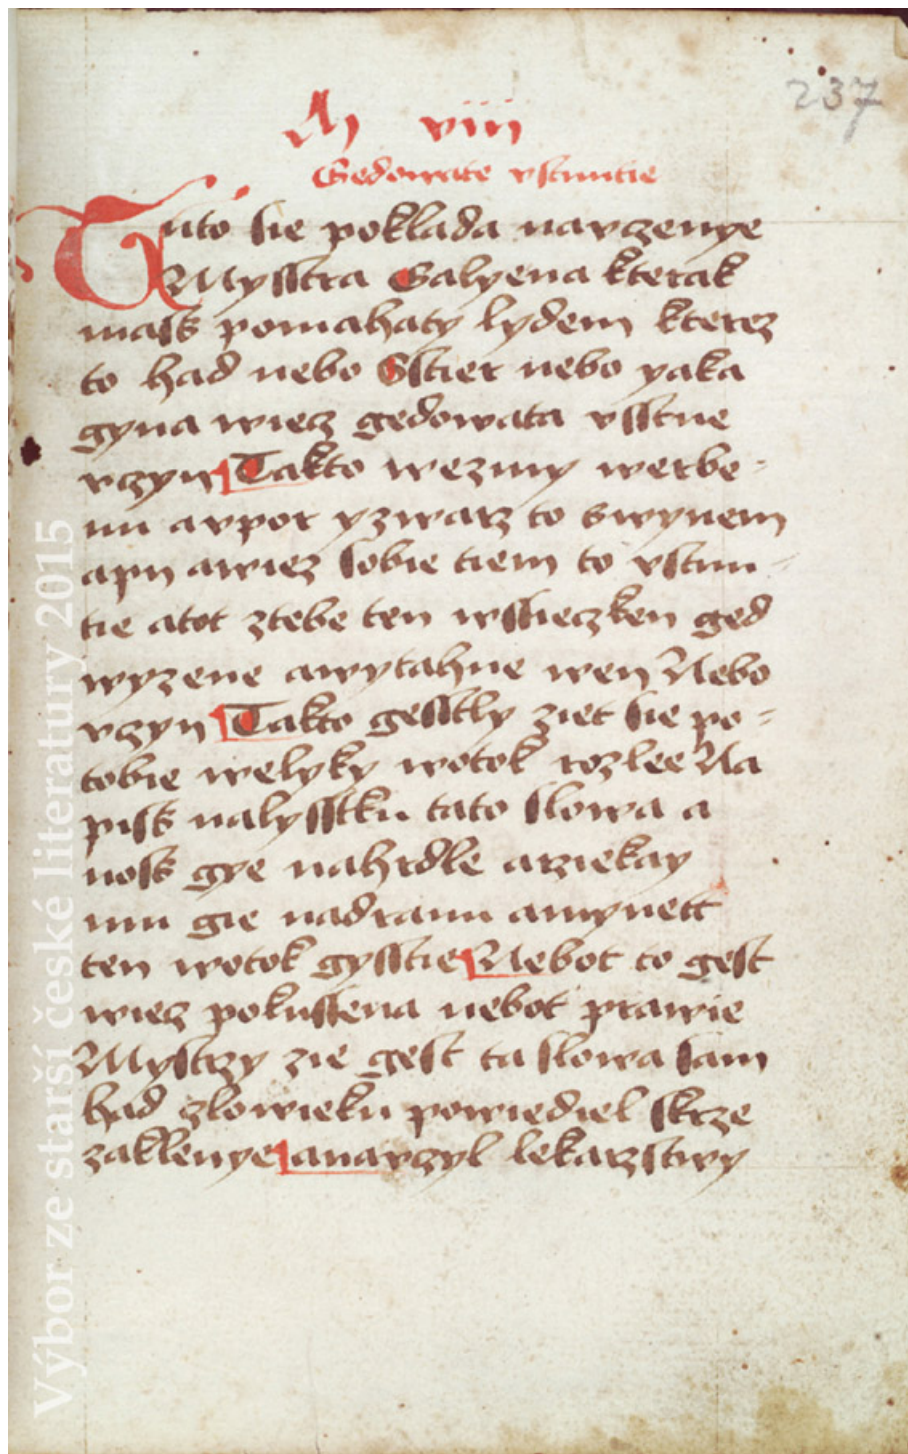 237
M viii
Gedowate vstnutie
Tuto sie poklada navczenye
Mysstra Galyena kterak
mass pomahaty lydem kterez
to had nebo Sstier nebo yaka
gyna wiecz gedowata vsstne
vczyn Takto wezmy werbe-
nu avpor yzwarz to swynem
apy awiez sobie tiem to vstnu-
tie atot ztebe ten wssieczken ged
wyzene awytahne wen Nebo
vczyn Takto gesstly ziet sie po-
tobie welyky wotok rozlee Na
piss nalysstku tato slowa a
noss gye nahrdle arziekay
mu gie nadranu amynett
ten wotok gysstie Nebot to gest
wiecz pokussena nebot prawie
Mystrzy zie gest ta slowa sam
had czlowieku powiediel skrze
zaklenye anavczyl lekarzstwy
Výbor ze starší české literatury 2015